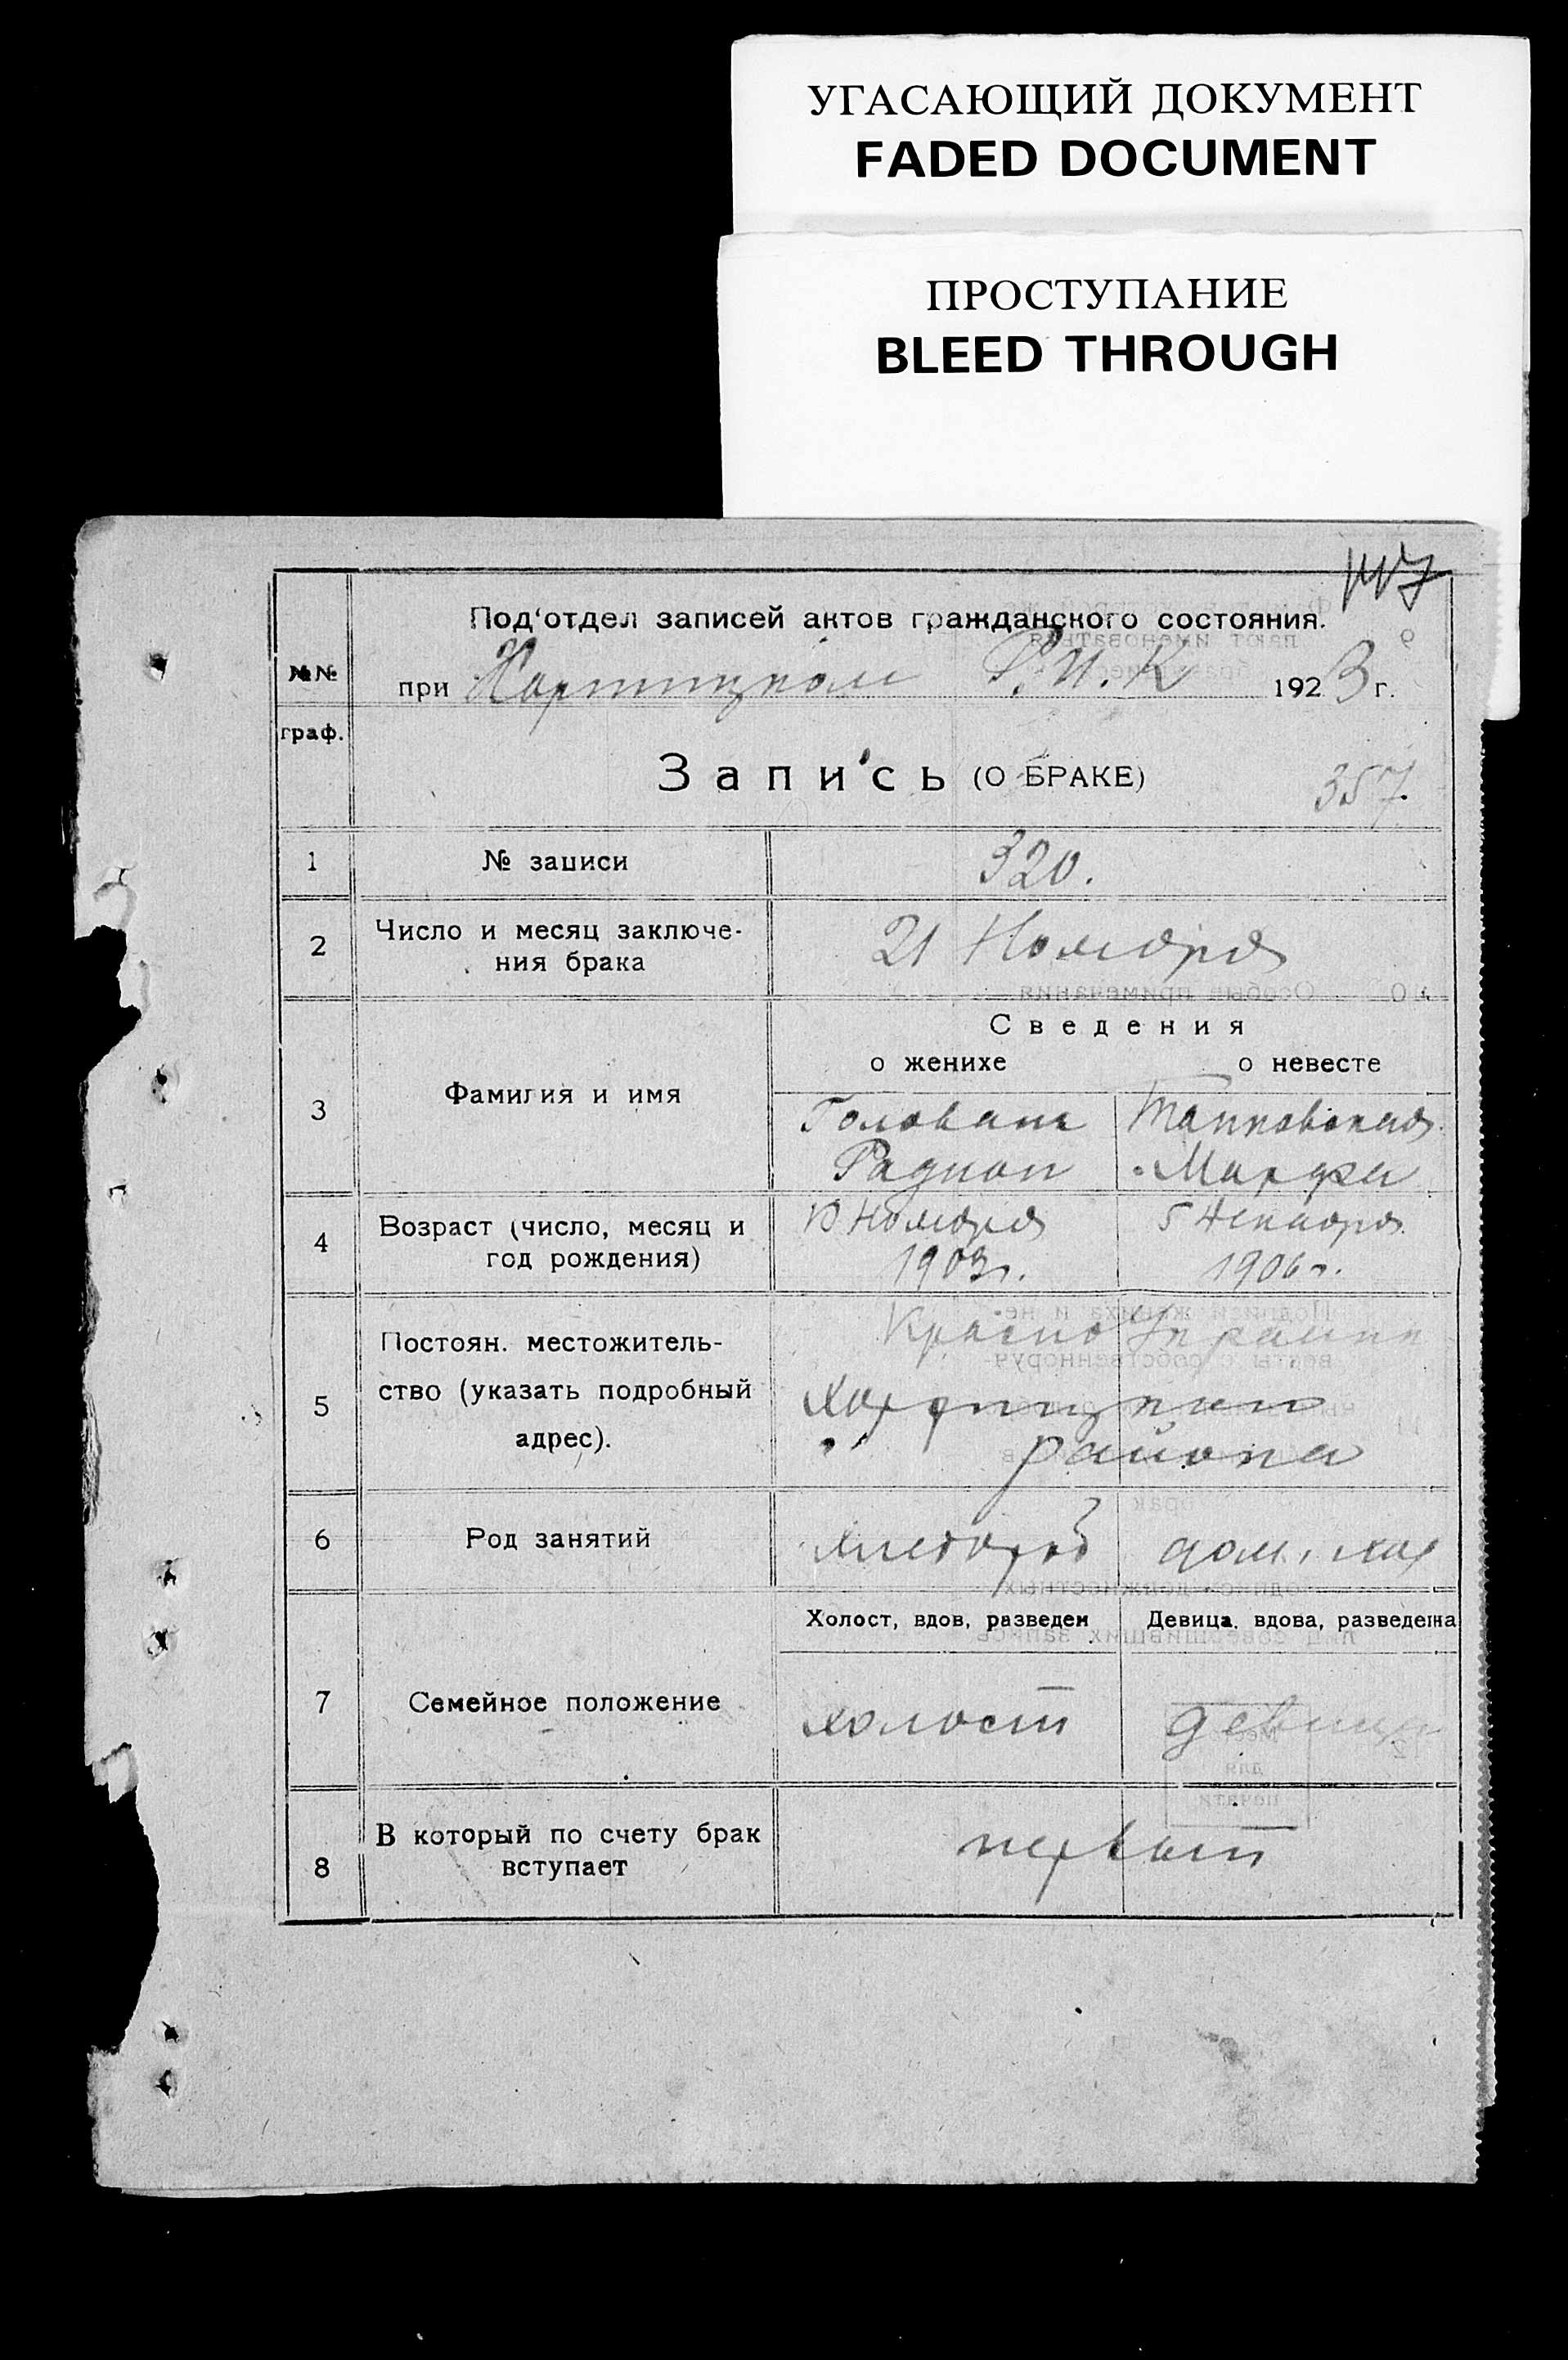 УГАСАЮЩИЙ ДОКУМЕНТ
FADED DOCUMENT
ПРОСТУПАНИЕ
BLEED THROUGH
Под'отдел записей актов гражданского состояния.
№№ граф.
при Хортицком Р.И.К 1923 г.
Запись (О БРАКЕ)
357
1 № записи 320.
2 Число и месяц заключе-
ния брака 21 Ноября
Сведения
о женихе о невесте
3 Фамилия и имя
Головань
Радион Марфа
4 Возраст (число, месяц и
год рождения)
10 Ноября 5 Декабря
1903г. 1906г.
5 Постоян. местожитель-
ство (указать подробный
адрес).
Хортицкий
района
6 Род занятий хлебороб дом. хоз
Холост, вдов, разведен Девица, вдова, разведена
7 Семейное положение холост девица
8 В который по счету брак
вступает первый